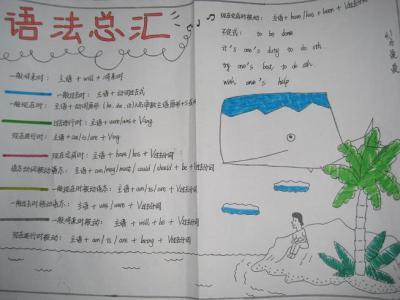 语法总汇
一般将来时: 主语 + will + 将来时
一般过去时: 主语 + 动词过去式
一般现在时: 主语 + 动词原形
过去进行时: 主语 + was/were + Ving
现在进行时: 主语 + am/is/are + Ving
现在完成时: 主语 + have/has + V过去分词
情态动词被动语态: 主语 + can/may/must/could/should + be + V过去分词
一般现在时被动语态: 主语 + am/is/are + V过去分词
一般过去时被动语态: 主语 + was/were + V过去分词
一般将来时被动: 主语 + will + be + V过去分词
现在进行时被动语态: 主语 + am/is/are + being + V过去分词
现在完成时被动: 主语 + have/has + been + V过去分词
不定式: to be done
it's one's duty to do sth.
try one's best to do sth.
with one's help